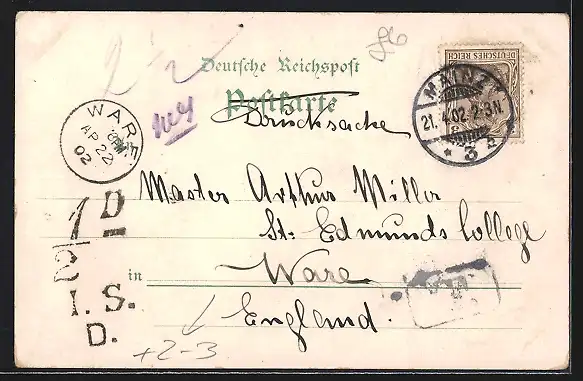 Deutsche Reichspost
Postkarte
Drucksache
DEUTSCHES REICH
MAINZ
21.4.02.2-3N.
* 3 a
WARE
AP 22
02
Master Arthur Miller
St. Edmunds College
in Ware
England.
1/2 D
I. S.
D.
+2-3